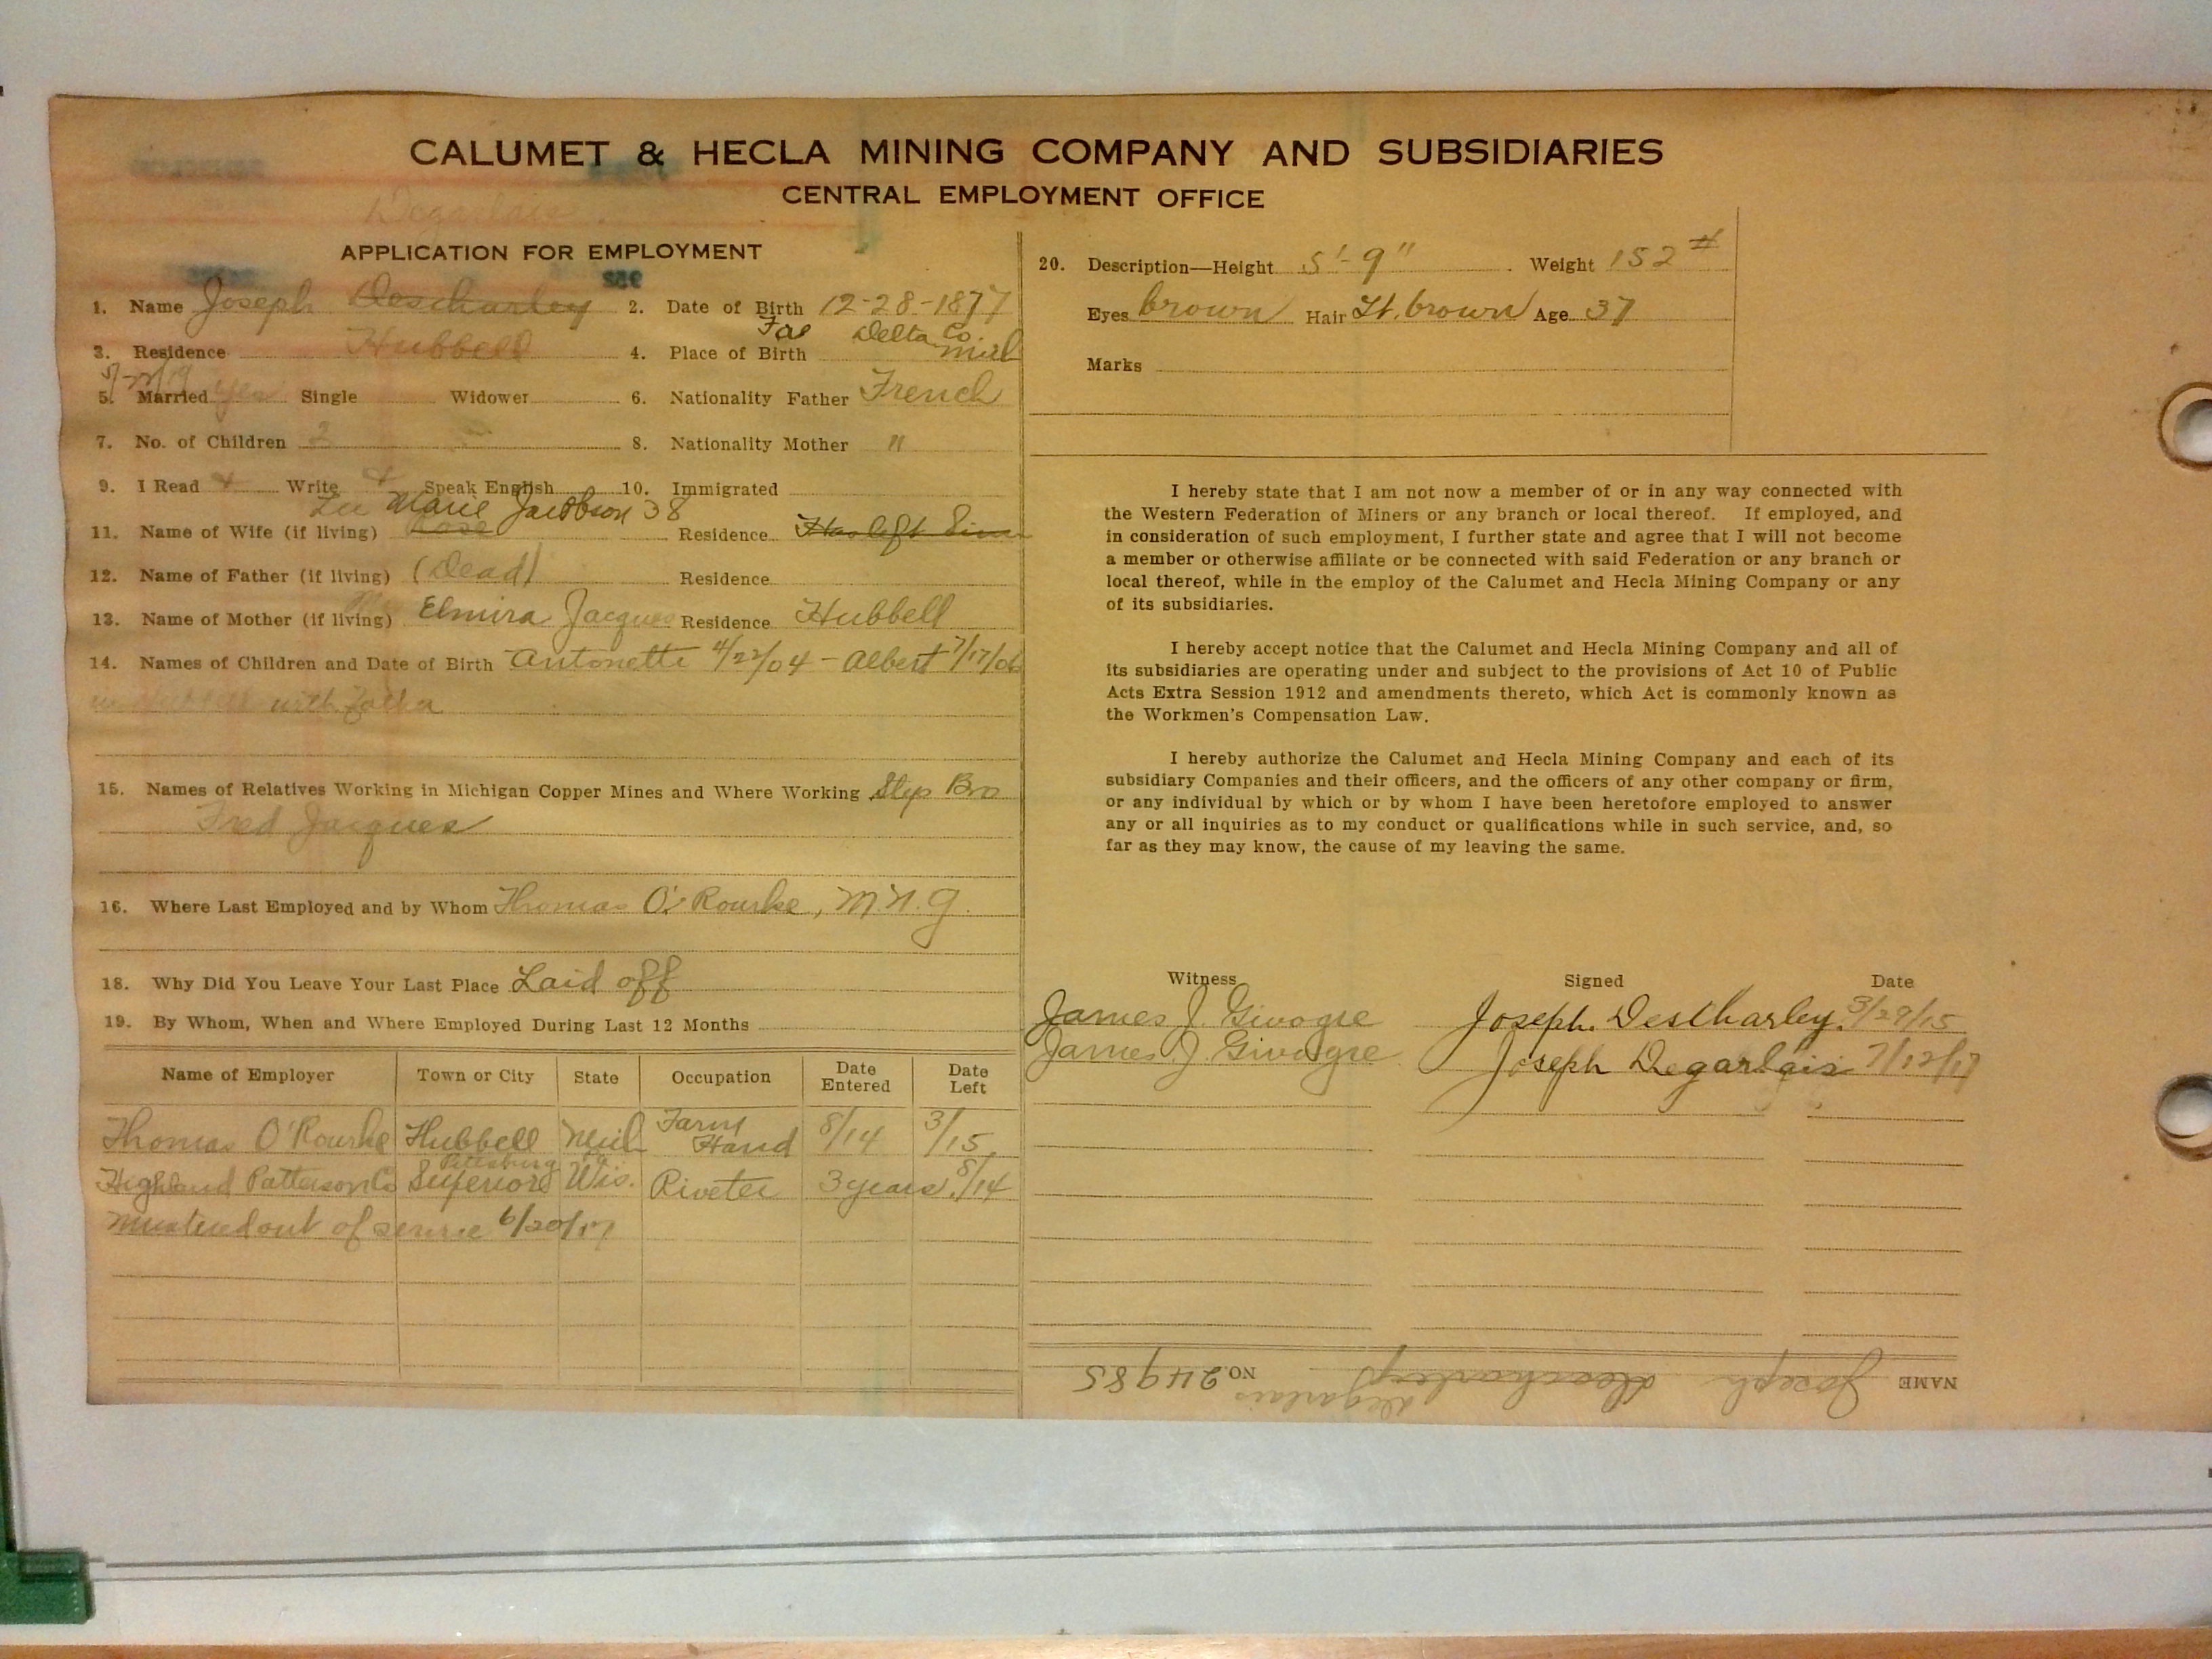 CALUMET & HECLA MINING COMPANY AND SUBSIDIARIES
CENTRAL EMPLOYMENT OFFICE
Degarlais
APPLICATION FOR EMPLOYMENT
1. Name Joseph Descharley 2. Date of Birth 12-28-1877
3. Residence Hubbell 4. Place of Birth Delta Co. Mich
5. Married yes Single Widower 6. Nationality Father French
7. No. of Children 2 8. Nationality Mother "
9. I Read Write Speak English 10. Immigrated
Marie Jacobson 38
11. Name of Wife (if living) Rose Residence Has left him
12. Name of Father (if living) (Dead) Residence
13. Name of Mother (if living) Elmira Jacques Residence Hubbell
14. Names of Children and Date of Birth Antonette 4/22/04 - Albert 7/17/06
with Father
15. Names of Relatives Working in Michigan Copper Mines and Where Working Step Bro
Fred Jacques
16. Where Last Employed and by Whom Thomas O'Rourke, M.N.G.
18. Why Did You Leave Your Last Place Laid off
19. By Whom, When and Where Employed During Last 12 Months
Name of Employer Town or City State Occupation Date Entered Date Left
Thomas O'Rourke Hubbell Mich Farm Hand 8/14 3/15
Pittsburg Pa.
Highland Patterson Co Superior Wis. Riveter 3 years 8/14
Mustered out of service 6/20/17
20. Description—Height 5'-9" Weight 152#
Eyes brown Hair Lt. brown Age 37
Marks
I hereby state that I am not now a member of or in any way connected with
the Western Federation of Miners or any branch or local thereof. If employed, and
in consideration of such employment, I further state and agree that I will not become
a member or otherwise affiliate or be connected with said Federation or any branch or
local thereof, while in the employ of the Calumet and Hecla Mining Company or any
of its subsidiaries.
I hereby accept notice that the Calumet and Hecla Mining Company and all of
its subsidiaries are operating under and subject to the provisions of Act 10 of Public
Acts Extra Session 1912 and amendments thereto, which Act is commonly known as
the Workmen's Compensation Law.
I hereby authorize the Calumet and Hecla Mining Company and each of its
subsidiary Companies and their officers, and the officers of any other company or firm,
or any individual by which or by whom I have been heretofore employed to answer
any or all inquiries as to my conduct or qualifications while in such service, and, so
far as they may know, the cause of my leaving the same.
Witness Signed Date
James J. Givogre Joseph Descharley 3/29/15
James J. Givogre Joseph Degarlais 7/12/17
NAME Joseph Descharley NO. 24985
Degarlais